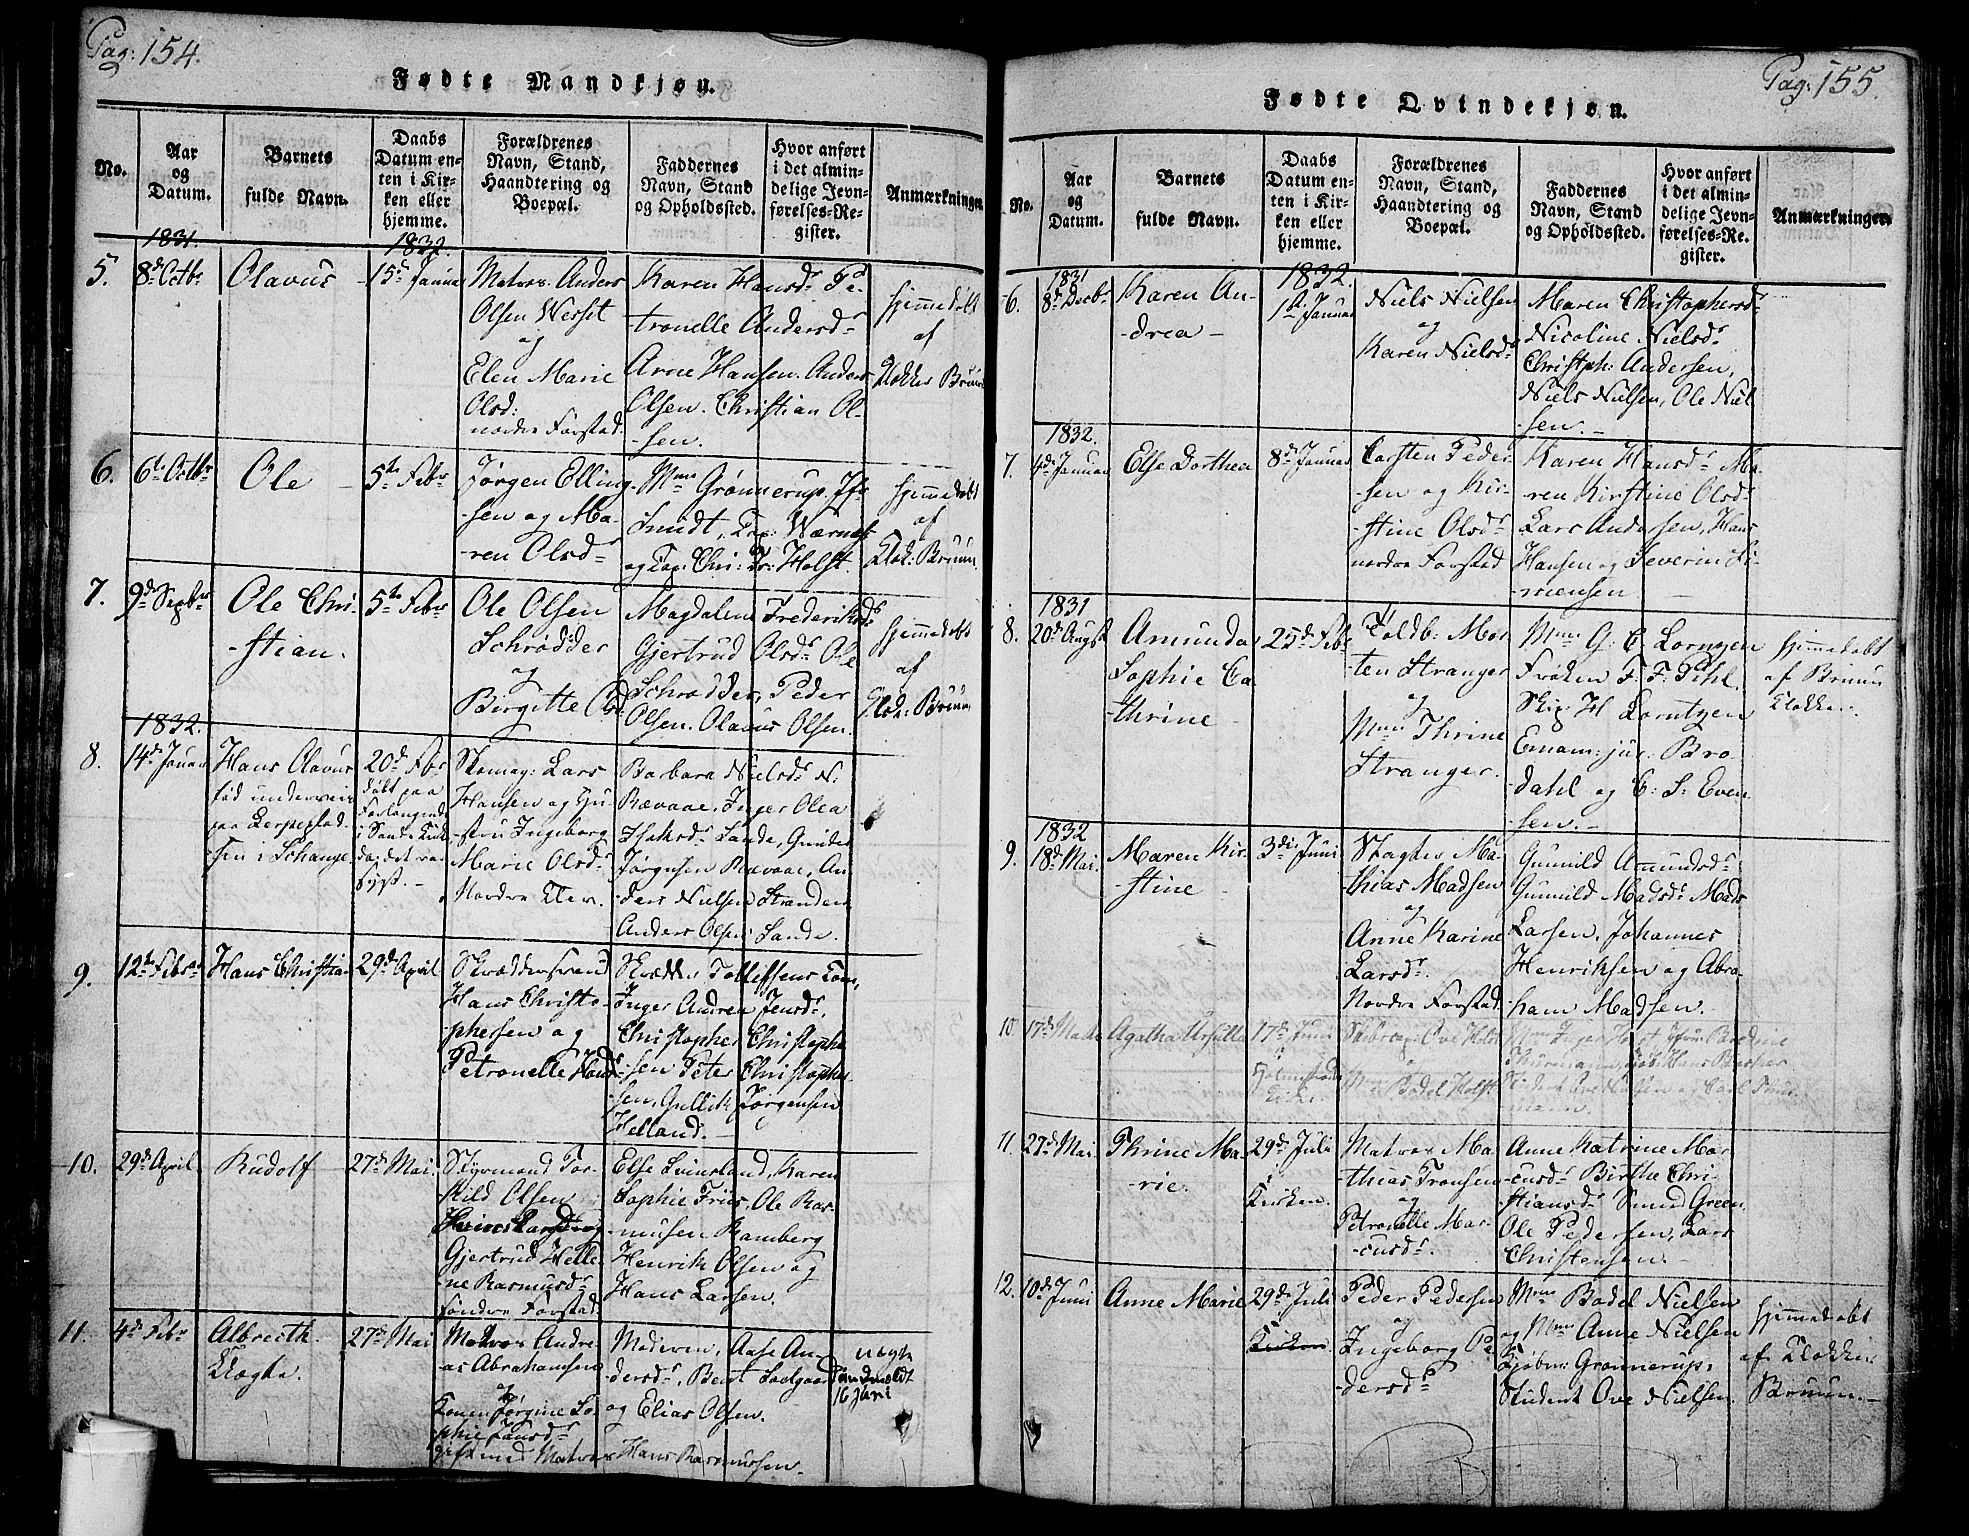 Pag: 154.
Fødte Mandkjøn.
No.
Aar
og
Datum.
Barnets
fulde Navn.
Daabs
Datum en-
ten i Kir-
ken eller
hjemme.
Forældrenes
Navn, Stand,
Haandtering og
Boepæl.
Faddernes
Navn, Stand
og Opholdssted.
Hvor anført
i det almin-
delige Jevn-
førelses-Re-
gister.
Anmærkninger
1831.
1832.
5.
8d Octbr
Olavus
15d Januar
Matros Anders
Olsen Wesset
og
Elen Marie
Olsd:
nordre Forstad.
Karen Hansdr Pe-
-tronelle Andersdr
Arne Hansen. Anders
Olsen. Christian Ol-
-sen.
hjemmedøbt
af
Klokker Bruun
6.
6te Octbr
Ole
5te Febr
Jørgen Elling-
-sen og Ma-
-ren Olsdr
Mme Grønnerup. Jfr
Smidt,
og Cap: Chr: Fr: Holst.
hjemmedøbt
af
Klok: Bruun.
7.
9d Septbr
Ole Chri-
-stian.
5te Febr
Ole Olsen
Schrødder
og
Birgitte Olsd.
Magdalene Frederiksdr
Gjertrud Olsdr Ole
Schrødder, Peder
Olsen. Olavus Olsen.
hjemmedøbt
af
Klok: Bruun
1832.
8.
14d Januar
Hans Olavus
fød underveis
paa
i Schange
20d Febr
døbt paa
Forlangende
i Sande Kirke
Skomag: Lars
Hansen og Hu-
-stru Ingeborg
Marie Olsdr
Nordre Klev.
Barbara Nielsdr N.
Rævaae, Inger Olea
Sande, Gunder
Jørgensen Revaae, An-
-ders Nielsen Stranden
Anders Olsen Sande.
9.
12te Febr
Hans Christian
29d April
Skræddersvend
Hans Christo-
-phersen og
Petronelle Hansdr
Skrædder Tollefsens Kone,
Inger Andrea Jensdr,
Christopher Christopher-
-sen Peter Christopher-
-sen, Gullik Jørgensen
Helland. -
10.
29d April.
Rudolf
27d Mai
Styrmand Tor-
-kild Olsen
Gjertrud Helle-
-ne Rasmusdr
søndre Forstad.
Else Svinsland, Karen
Sophie Friis, Ole Ras-
-mussen Ramberg
Henrik Olsen og
Hans Larsen.
11.
4d Febr
Albrecth.
Klægte.
27d Mai
Matros Andre-
-as Abrahamsen
og
Konen Jørgine So-
-phie Hansdr
gift med Matros Hans Rasmussen.
Moderen, Aase An-
dersdr, Bent
og Elias Olsen.
uægte
16 Juni
Pag: 155.
Fødte Qvindekjøn.
No.
Aar
og
Datum.
Barnets
fulde Navn.
Daabs
Datum en-
ten i Kir-
ken eller
hjemme.
Forældrenes
Navn, Stand,
Haandtering og
Boepæl.
Faddernes
Navn, Stand
og Opholdssted.
Hvor anført
i det almin-
delige Jevn-
førelses-Re-
gister.
Anmærkninger.
1831
1832.
6.
8d Decbr
Karen An-
-drea -
1ste Januar
Niels Nielsen
og
Karen Nielsdr
Maren Christophersdr
Nicoline Nielsdr
Christph: Andersen,
Niels Nielsen, Ole Niel-
sen. -
1832.
7.
4de Januar
Else Dorthea
8de Januar
Carsten Peder-
-sen og Kir-
-stine Olsdr
nordre Forstad
Karen Hansdr Ma-
-ren Kirstine Olsdr
Lars Andersen, Hans
Hansen og Severin Si-
-mensen
1831
8.
20d Augst
Amunda
Sophie Ca-
-thrine
25d Febr
Toldb: Mor-
-ten Stranger
og
Mme Thrine
Stranger.
Mme G: C. Lorntzen
Frøken F: F: Pihl.
Skip. H Lorntzen
Emam: jur. Bro-
dahl og C: S: Even-
sen. -
hjemmedøbt
af Bruun
Klokker.
1832
9.
18d Mai.
Maren Kir-
-stine
3die Juni
Slagter Ma-
-thias Madsen
og
Anne Karine
Larsdr
Nordre Forstad.
Gunnild Amundsdr
Gunnild Madsdr Mads
Larsen, Johannes
Henriksen og Abra-
-ham Madsen.
10.
17d Marts
Agatha Ursilla
17de Juni
Skibscap: Ove Holst
Bodel Holst
Mme Inger Holst
11.
27d Mai.
Thrine Ma-
-rie.
29d Juli
Kirken.
Matros Ma-
-thias Tronsen
og
Petronelle Mar-
-cusdr.
Anne Katrine Mar-
-cusdr Birthe Chri-
-stiansdr Smud Green
Ole Pedersen, Lars
Christensen.
12.
10de Juni
Anne Marie
29de Juli
Kirken
Peder Pedersen
og
Ingeborg Pe-
-dersdr
Mme Bodel Nielsen
og Mme Anne Nielsen
Kjøbm: Grønnerup:
Student Ove Nielsen.
hjemmedøbt
af Klokker
Bruun. -